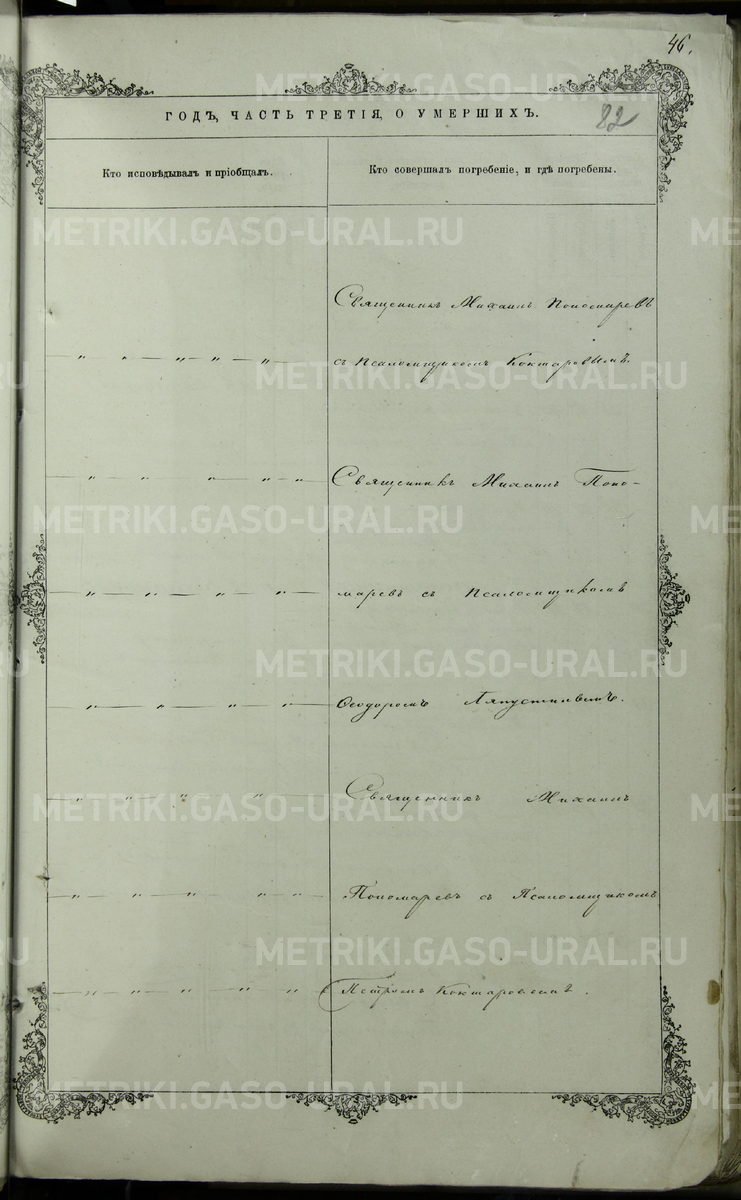 46.
82
ГОДЪ, ЧАСТЬ ТРЕТІЯ, О УМЕРШИХЪ.
Кто исповѣдывалъ и пріобщалъ.
Кто совершалъ погребеніе, и гдѣ погребены.
Священникъ Михаилъ Пономаревъ
съ Псаломщикомъ Коктаровымъ.
Священникъ Михаилъ Поно-
маревъ съ Псаломщикомъ
Ѳеодоромъ Ляпустинымъ.
Священникъ Михаилъ
Пономаревъ съ Псаломщикомъ
Петромъ Коктаровымъ.
METRIKI.GASO-URAL.RU